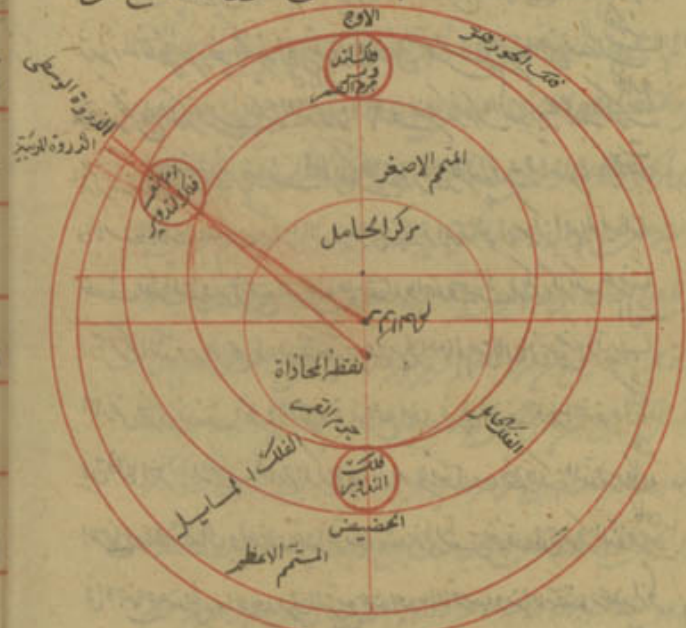 الاوج
فلك الجوزهر
فلك التد
وير
جرم القمر
الذروة الوسطى
الذروة المرئية
فلك التدوير
المتمم الاصغر
مركز الحامل
نقطة المحاذاة
جرم القمر
الفلك الحامل
الفلك المايل
فلك
التدوير
الحضيض
المتمم الاعظم